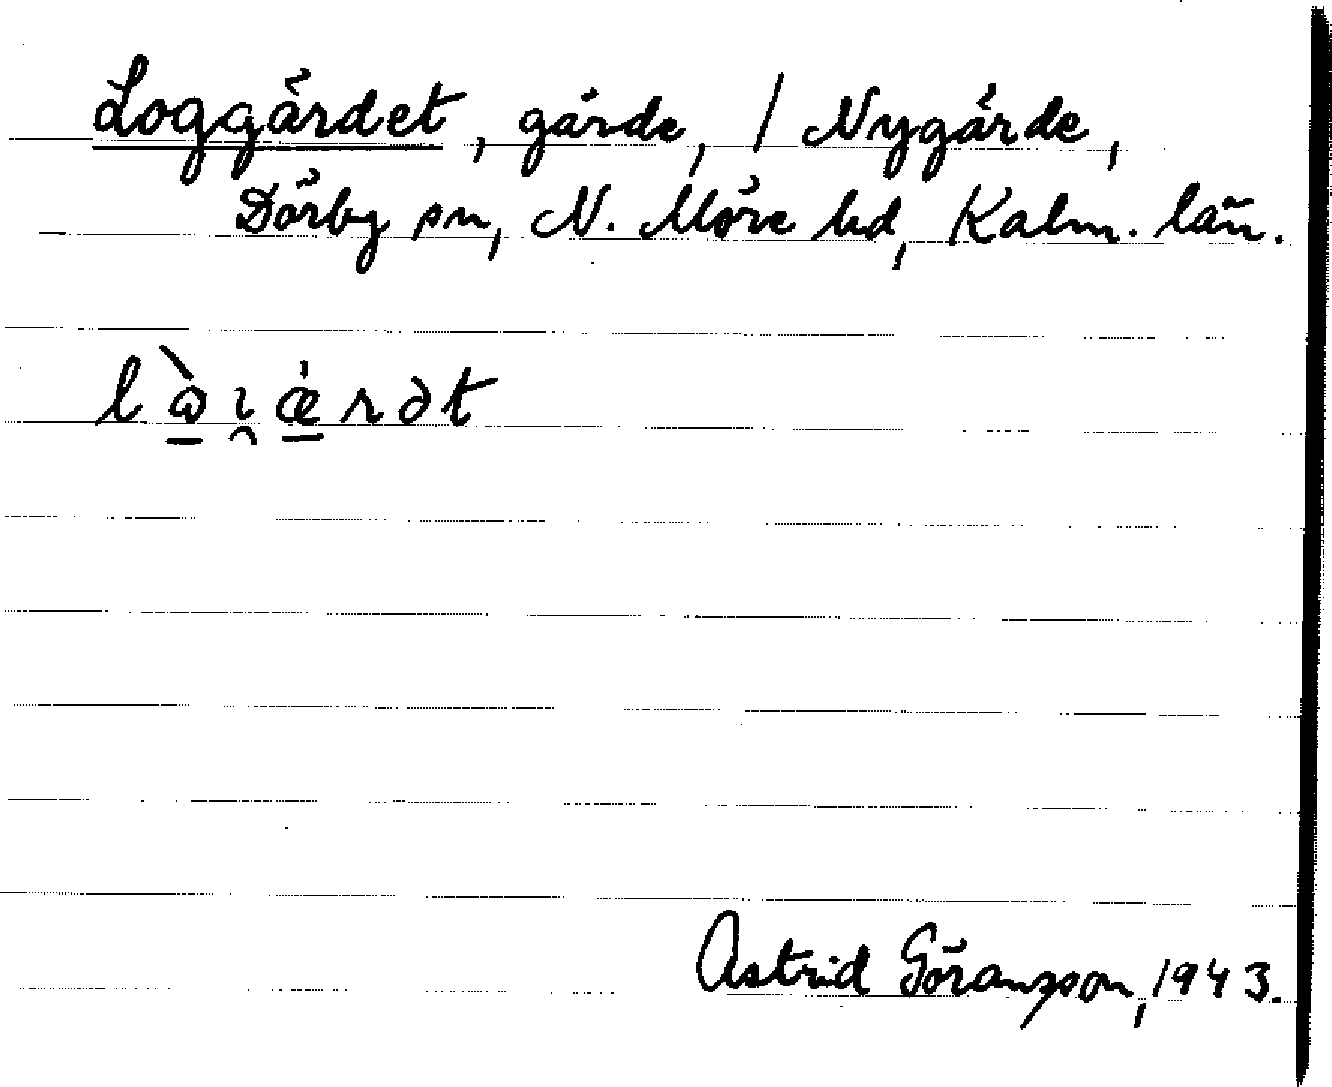 Loggärdet, gärde, / Nygärde,
Dörby sn, N. Möre hd, Kalm. län.
Astrid Göransson, 1943.